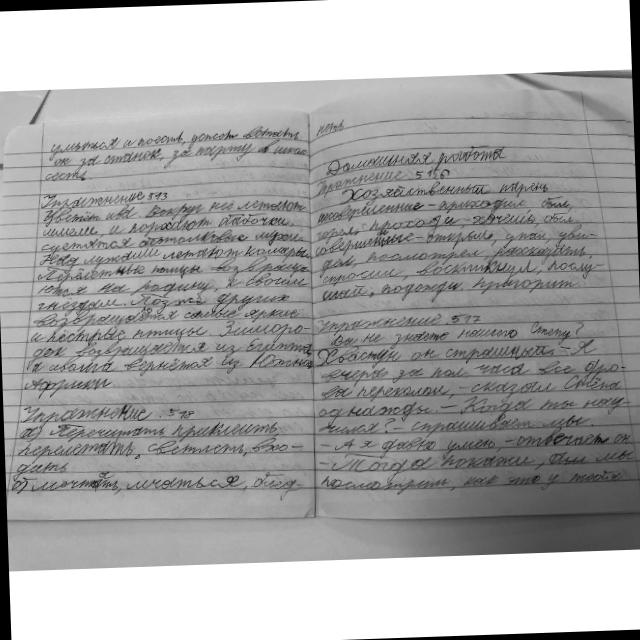 умыться и поесть, потом встать
ок за станок, за парту в школе
сесть
Упражнение 513
Цветёт ива. Вокруг неё летают
шмели, и порхают бабочки,
суетятся мухи.
Над лужами летают комары.
Перелётные птицы возвраща
ются на родину, к своим
гнёздам. Позже других
возвращаются самые яркие
и пёстрые птицы. Зиморо-
док возвращается из Египта,
а иволга вернётся из Южной
Африки
Упражнение. 518
а) Перечитать приклеить
перелетать, светлеть, вхо-
дать
б) мечтать, мчаться, бод-
неть
Домашняя работа
Упражнение 516
Хозяйственный парень
совершенные - приходил был,
проходи - хочешь, был
совершенные - открыл, упал, уви-
дел, посмотрел, рассказать,
спросил, воскликнул, послу-
шай, подожди, приговорит
Упражнение 517
Вы не знаете нашего Стёпу?
Хвастун он страшный. - Я
вчера за пол часа все дро-
ва переколол, - сказал Стёпа
однажды. - Когда ты нау-
чился? - спрашиваем мы.
- А я давно умею, - отвечает он
- Тогда покажи, дай мы
посмотреть, как это у тебя